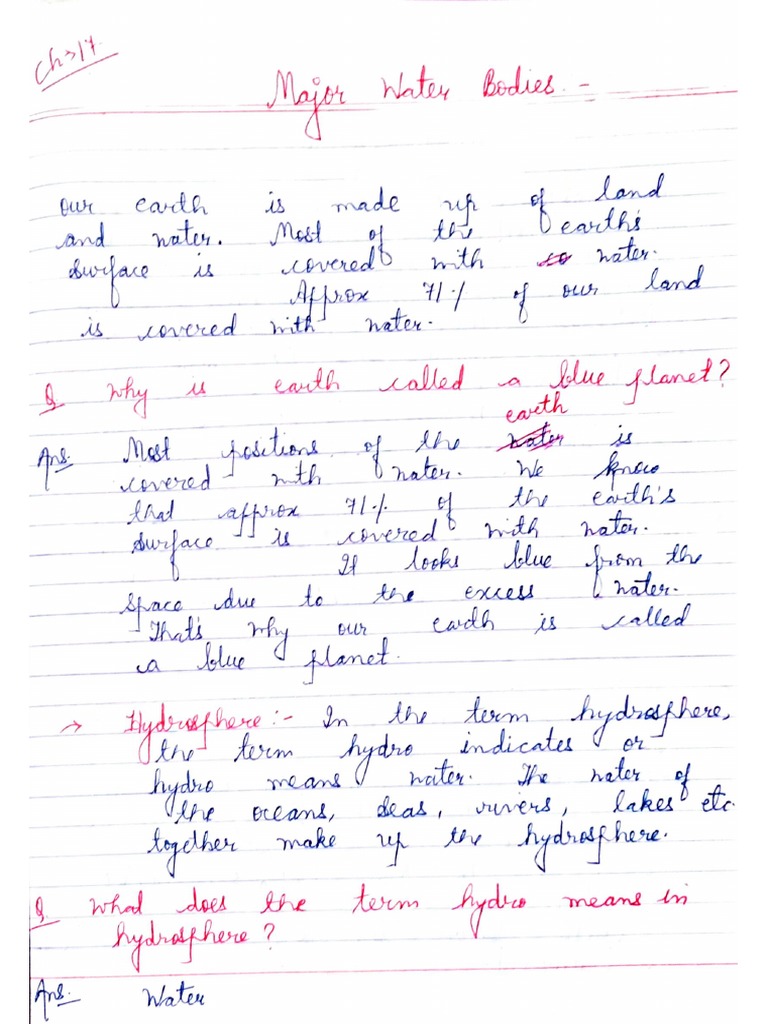 Ch->17.
Major Water Bodies. -
our earth is made up of land
and water. Most of the earth's
surface is covered with water.
Approx 71% of our land
is covered with water.
Q Why is earth called a blue planet?
earth
Ans. Most positions of the water is
covered with water. We know
that approx 71% of the earth's
surface is covered with water.
It looks blue from the
space due to the excess water.
That's why our earth is called
a blue planet.
→ Hydrosphere:- In the term hydrosphere,
the term hydro indicates or
hydro means water. The water of
the oceans, seas, rivers, lakes etc.
together make up the hydrosphere.
Q What does the term hydro means in
hydrosphere?
Ans. Water